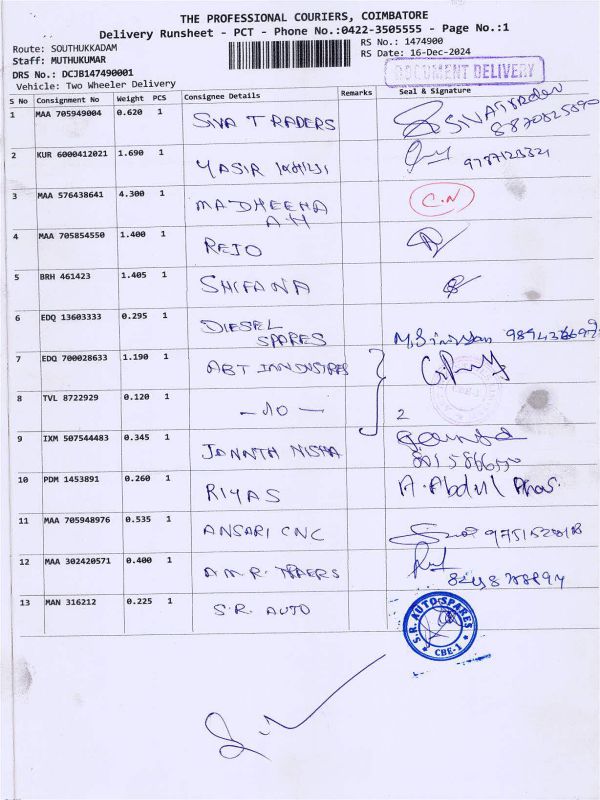 THE PROFESSIONAL COURIERS, COIMBATORE
Delivery Runsheet - PCT - Phone No.:0422-3505555 - Page No.:1
Route: SOUTHUKKADAM
RS No.: 1474900
Staff: MUTHUKUMAR
RS Date: 16-Dec-2024
DRS No.: DCJB147490001
DOCUMENT DELIVERY
Vehicle: Two Wheeler Delivery
S No Consignment No Weight PCS Consignee Details Remarks Seal & Signature
1 MAA 705949004 0.620 1 SIVA TRADERS
2 KUR 6000412021 1.690 1 YASIR
3 MAA 576438641 4.300 1 MADHEENA C.N
A H
4 MAA 705854550 1.400 1 REJO
5 BRH 461423 1.405 1 SHIFANA
6 EDQ 13603333 0.295 1 DIESEL
SPARES
7 EDQ 700028633 1.190 1 ABT
8 TVL 8722929 0.120 1 2
9 IXM 507544483 0.345 1 JANNTH NISHA
10 PDM 1453891 0.260 1 RIYAS A. Abdul
11 MAA 705948976 0.535 1 ANSARI CNC
12 MAA 302420571 0.400 1 A.M.R.
13 MAN 316212 0.225 1 S.R. AUTO
S.R. AUTO SPARES
CBE-1